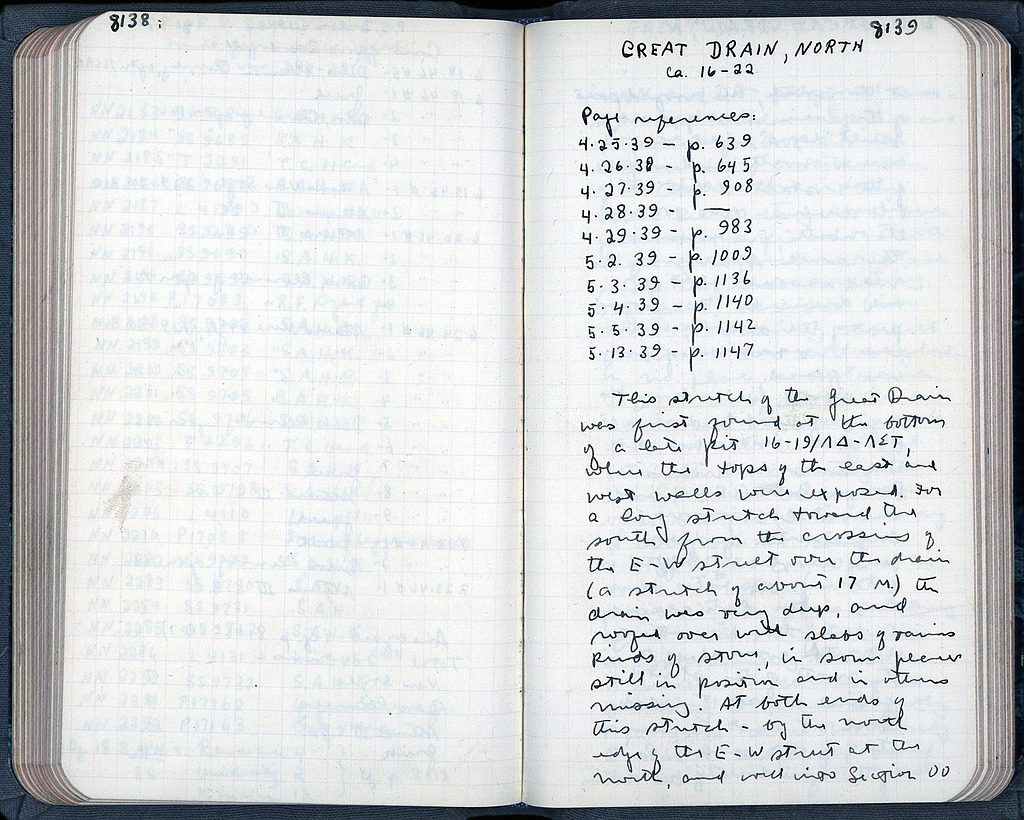 8138:
8139
GREAT DRAIN, NORTH
ca. 16-22
Page references:
4.25.39 - p. 639
4.26.38 - p. 645
4.27.39 - p. 908
4.28.39 - —
4.29.39 - p. 983
5.2.39 - p. 1009
5.3.39 - p. 1136
5.4.39 - p. 1140
5.5.39 - p. 1142
5.13.39 - p. 1147
This stretch of the Great Drain
was first found at the bottom
of a late pit 16-19/ΛΔ-ΛΣΤ,
where the tops of the east and
west walls were exposed. For
a long stretch toward the
south from the crossing of
the E-W street over the drain
(a stretch of about 17 M.) the
drain was very deep, and
roofed over with slabs of various
kinds of stone, in some places
still in position and in others
missing. At both ends of
this stretch - by the north
edge of the E-W street at the
north, and well into Section OO